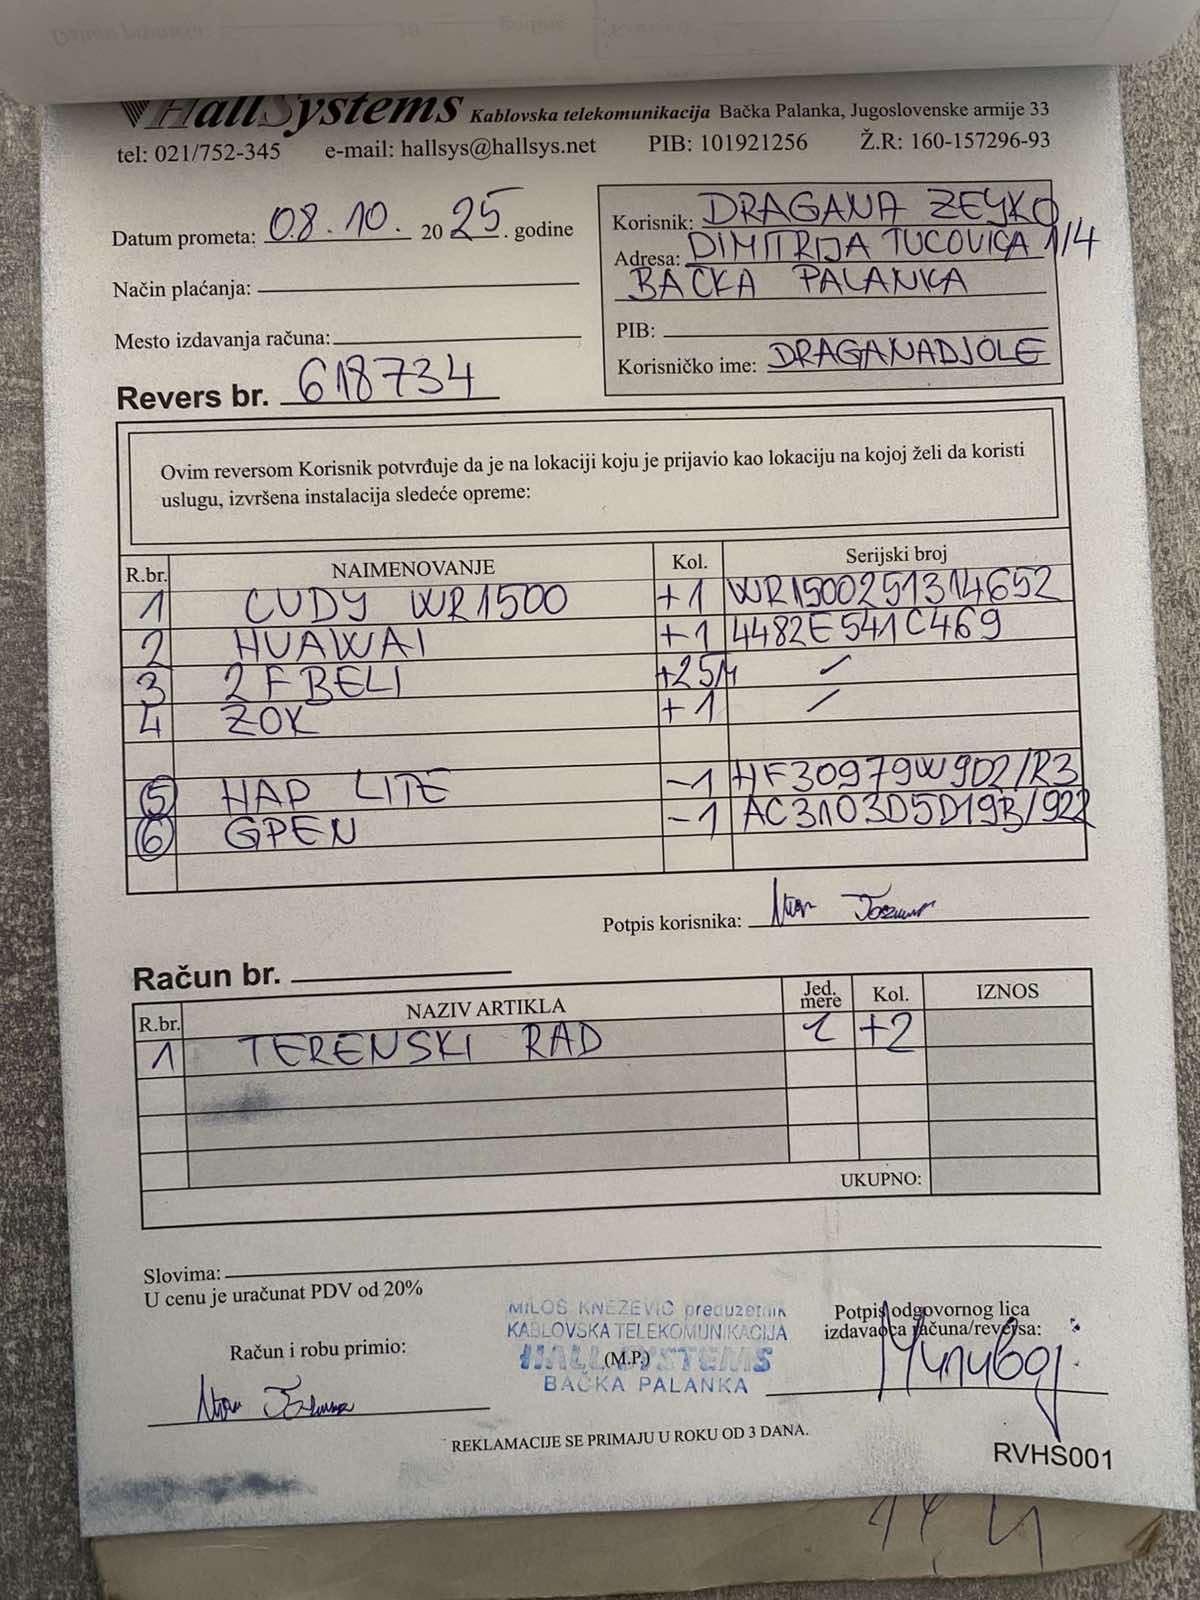 HallSystems Kablovska telekomunikacija Bačka Palanka, Jugoslovenske armije 33
tel: 021/752-345 e-mail: hallsys@hallsys.net PIB: 101921256 Ž.R: 160-157296-93
Datum prometa: 08.10. 2025. godine
Način plaćanja:
Mesto izdavanja računa:
Revers br. 618734
Korisnik: DRAGANA ZEJKO
Adresa: DIMITRIJA TUCOVIĆA 1/4
BAČKA PALANKA
PIB:
Korisničko ime: DRAGANADJOLE
Ovim reversom Korisnik potvrđuje da je na lokaciji koju je prijavio kao lokaciju na kojoj želi da koristi
uslugu, izvršena instalacija sledeće opreme:
R.br. NAIMENOVANJE Kol. Serijski broj
1 CUDY WR1500 +1 WR1500251314652
2 HUAWAI +1 4482E541C469
3 2F BELI +25M /
4 ZOK +1 /
5 HAP LITE -1 HF30979W9D2/R3
6 GPEN -1 AC3103D5D19B/922
Potpis korisnika:
Račun br.
R.br. NAZIV ARTIKLA Jed. mere Kol. IZNOS
1 TERENSKI RAD 1 +2
UKUPNO:
Slovima:
U cenu je uračunat PDV od 20%
Račun i robu primio:
MILOŠ KNEŽEVIĆ preduzetnik
KABLOVSKA TELEKOMUNIKACIJA
HALL SYSTEMS
(M.P.)
BAČKA PALANKA
Potpis odgovornog lica
izdavaoca računa/reversa:
REKLAMACIJE SE PRIMAJU U ROKU OD 3 DANA.
RVHS001